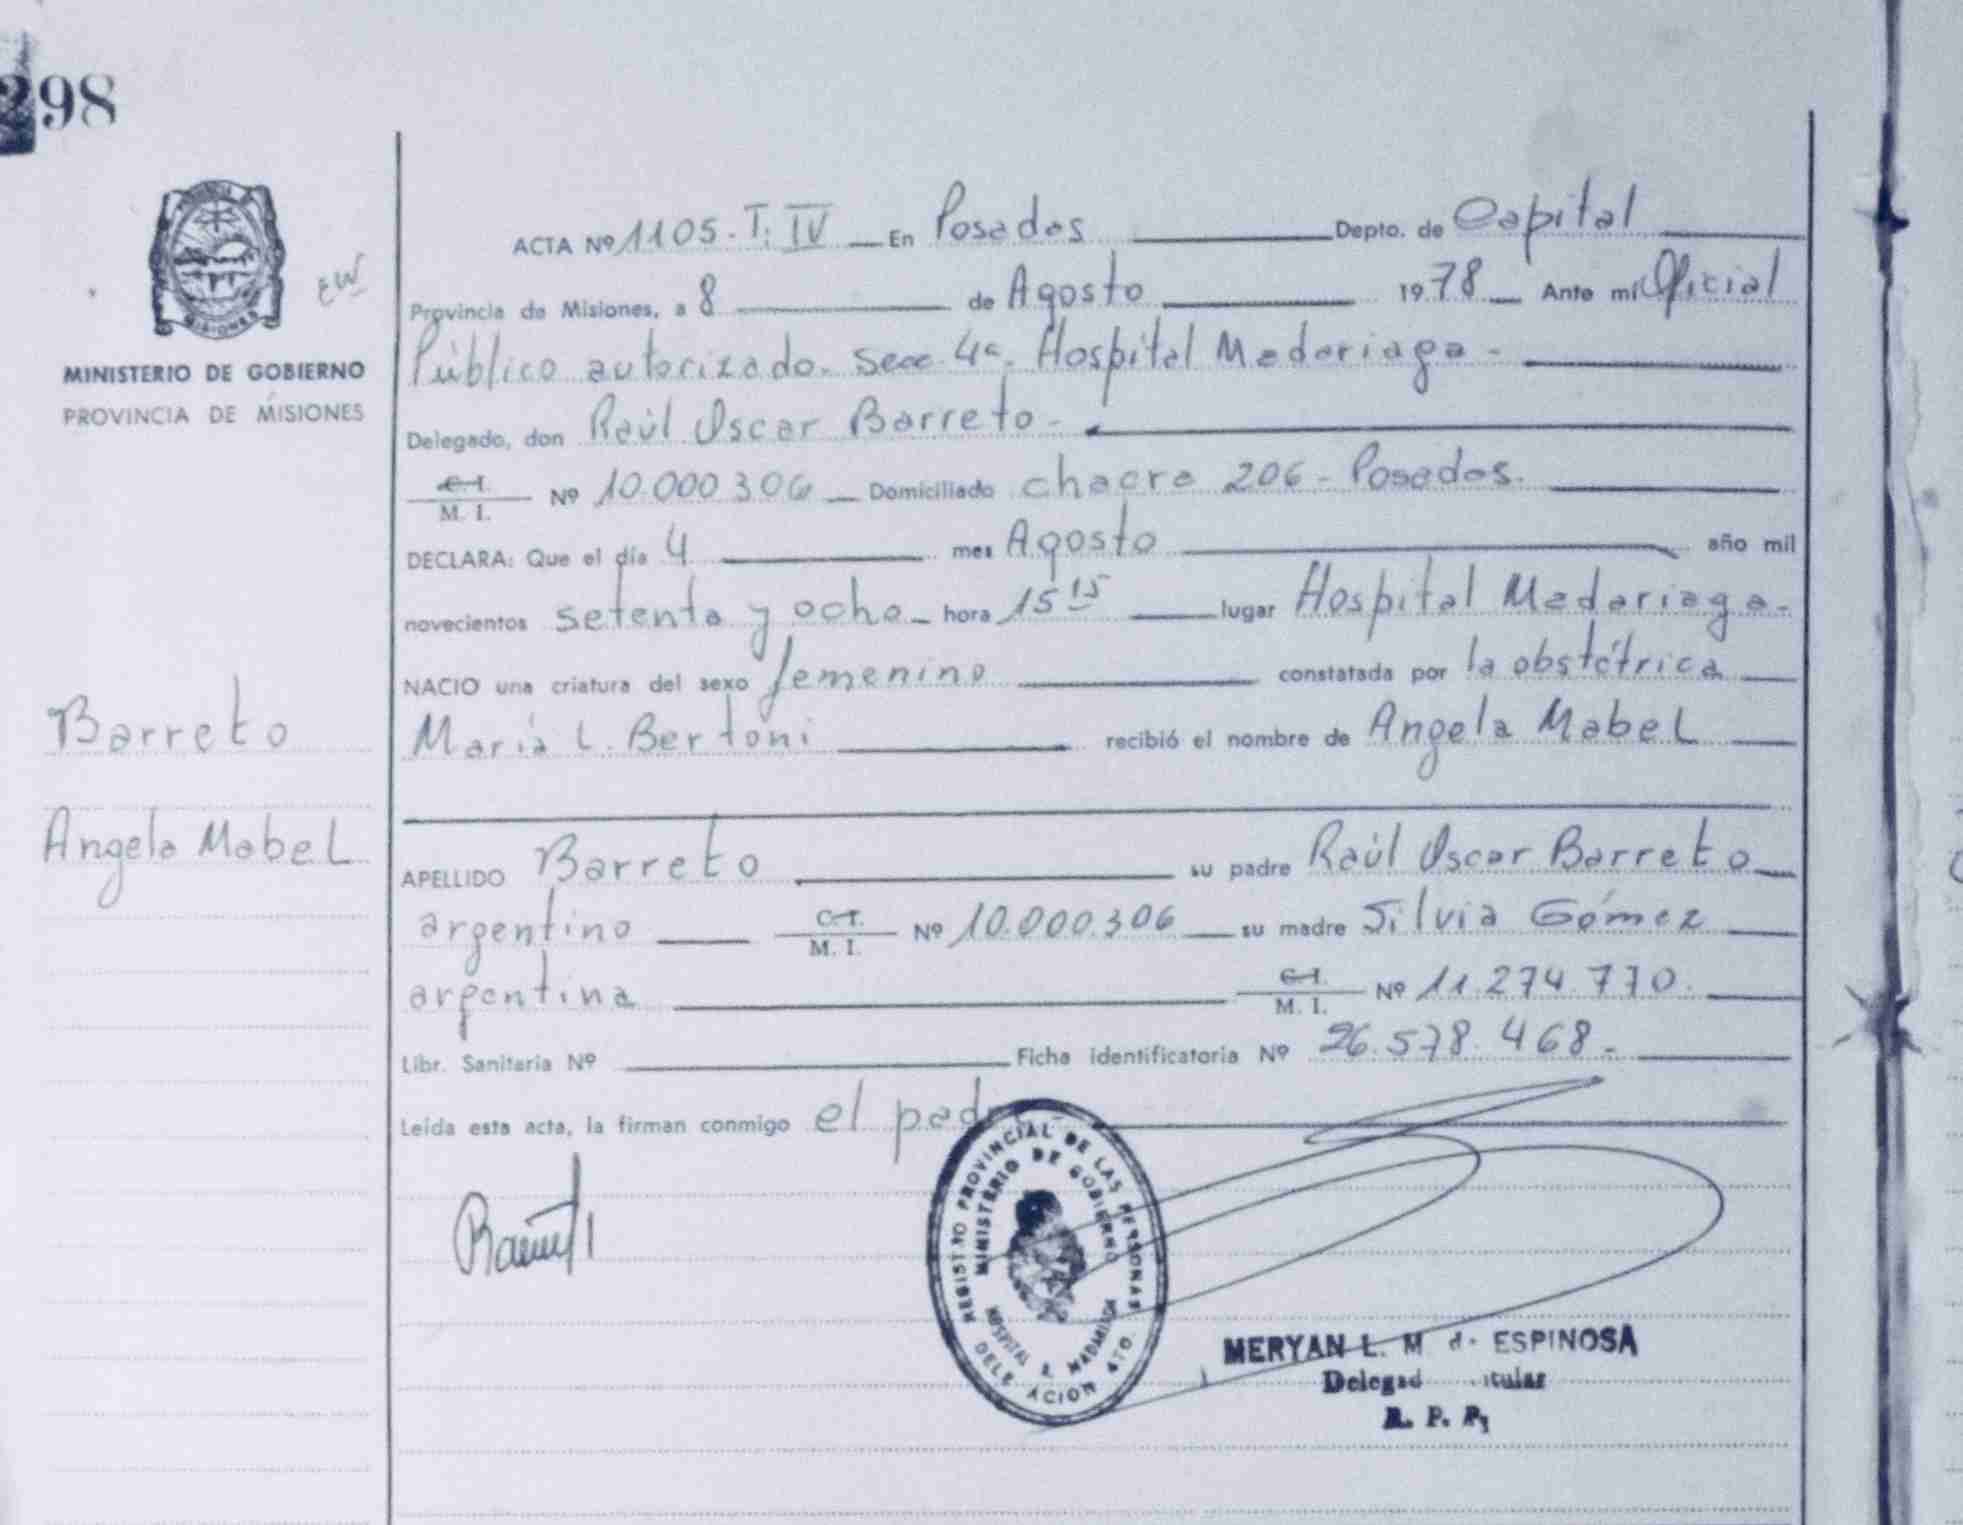 298
MISIONES
MINISTERIO DE GOBIERNO
PROVINCIA DE MISIONES
Barreto
Angela Mabel
ACTA Nº 1105. T. IV En Posadas Depto. de Capital
Provincia de Misiones, a 8 de Agosto 1978 Ante mi Oficial
Público autorizado. Secc. 4ª. Hospital Madariaga -
Delegado, don Raúl Oscar Barreto -
C.I. M. I. Nº 10.000.306 Domiciliado chacra 206 - Posadas.
DECLARA: Que el día 4 mes Agosto año mil
novecientos setenta y ocho hora 15 15 lugar Hospital Madariaga -
NACIO una criatura del sexo femenino constatada por la obstétrica
María L. Bertoni recibió el nombre de Angela Mabel
APELLIDO Barreto su padre Raúl Oscar Barreto
argentino C.I. M. I. Nº 10.000.306 su madre Silvia Gómez
argentina C.I. M. I. Nº 11.274.770.
Libr. Sanitaria Nº Ficha identificatoria Nº 26.578.468.-
Leída esta acta, la firman conmigo el padre
REGISTRO PROVINCIAL DE LAS PERSONAS
MINISTERIO DE GOBIERNO
HOSPITAL
MERYAN L. M d. ESPINOSA
R. P. P.